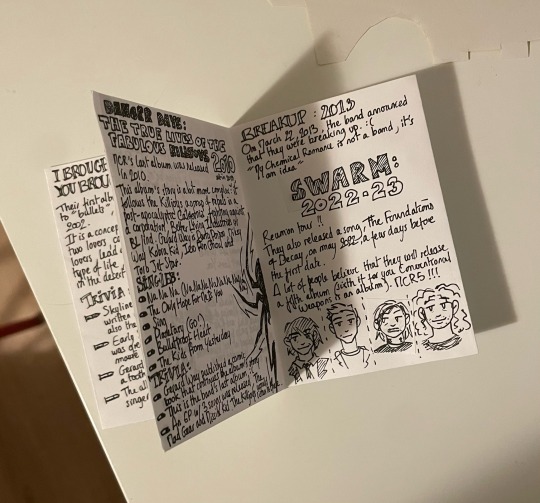 I BROUG
YOU BROU
Their first alb
to "bullets",
2002.
It is a conce
two lovers, a
lovers lead
type of life
in the desert
Trivia
Skyline
written
also the
Early
was di
movie
Gerard
a tooth
The al
singer
DANGER DAYS:
THE TRUE LIVES OF THE
FABULOUS KILLJOYS 2010
MCR's last album was released
in 2010.
This album's story is a bit more complex: it
follows the Killjoys, a group of rebels in a
post-apocalyptic California fighting against
a corporation: Better Living Industries or
BL/ind. Gerard Way is Party Poison, Mikey
Way Kobra Kid, Iero Fun Ghoul and
Toro Jet Star.
SINGLES:
Na Na Na (Na Na Na Na Na Na Na Na Na
The Only Hope For Me Is You
Sing
Planetary (GO!)
Bulletproof Heart
The Kids From Yesterday
TRIVIA:
Gerard Way published a comic
book that continues the album's
This is the band's last album
An EP w/ 3 songs was released: The
Mad Gear and Missile Kid
BREAKUP: 2013
On March 22, 2013, the band announced
that they were breaking up. :(
"My Chemical Romance is not a band, it's
an idea"
SWARM:
2022-23
Reunion tour !!
They also released a song, The Foundations
of Decay, on may 2022, a few days before
the first date.
A lot of people believe that they will release
a fifth album (sixth if you Conventional
Weapons is an album). MCR5 !!!